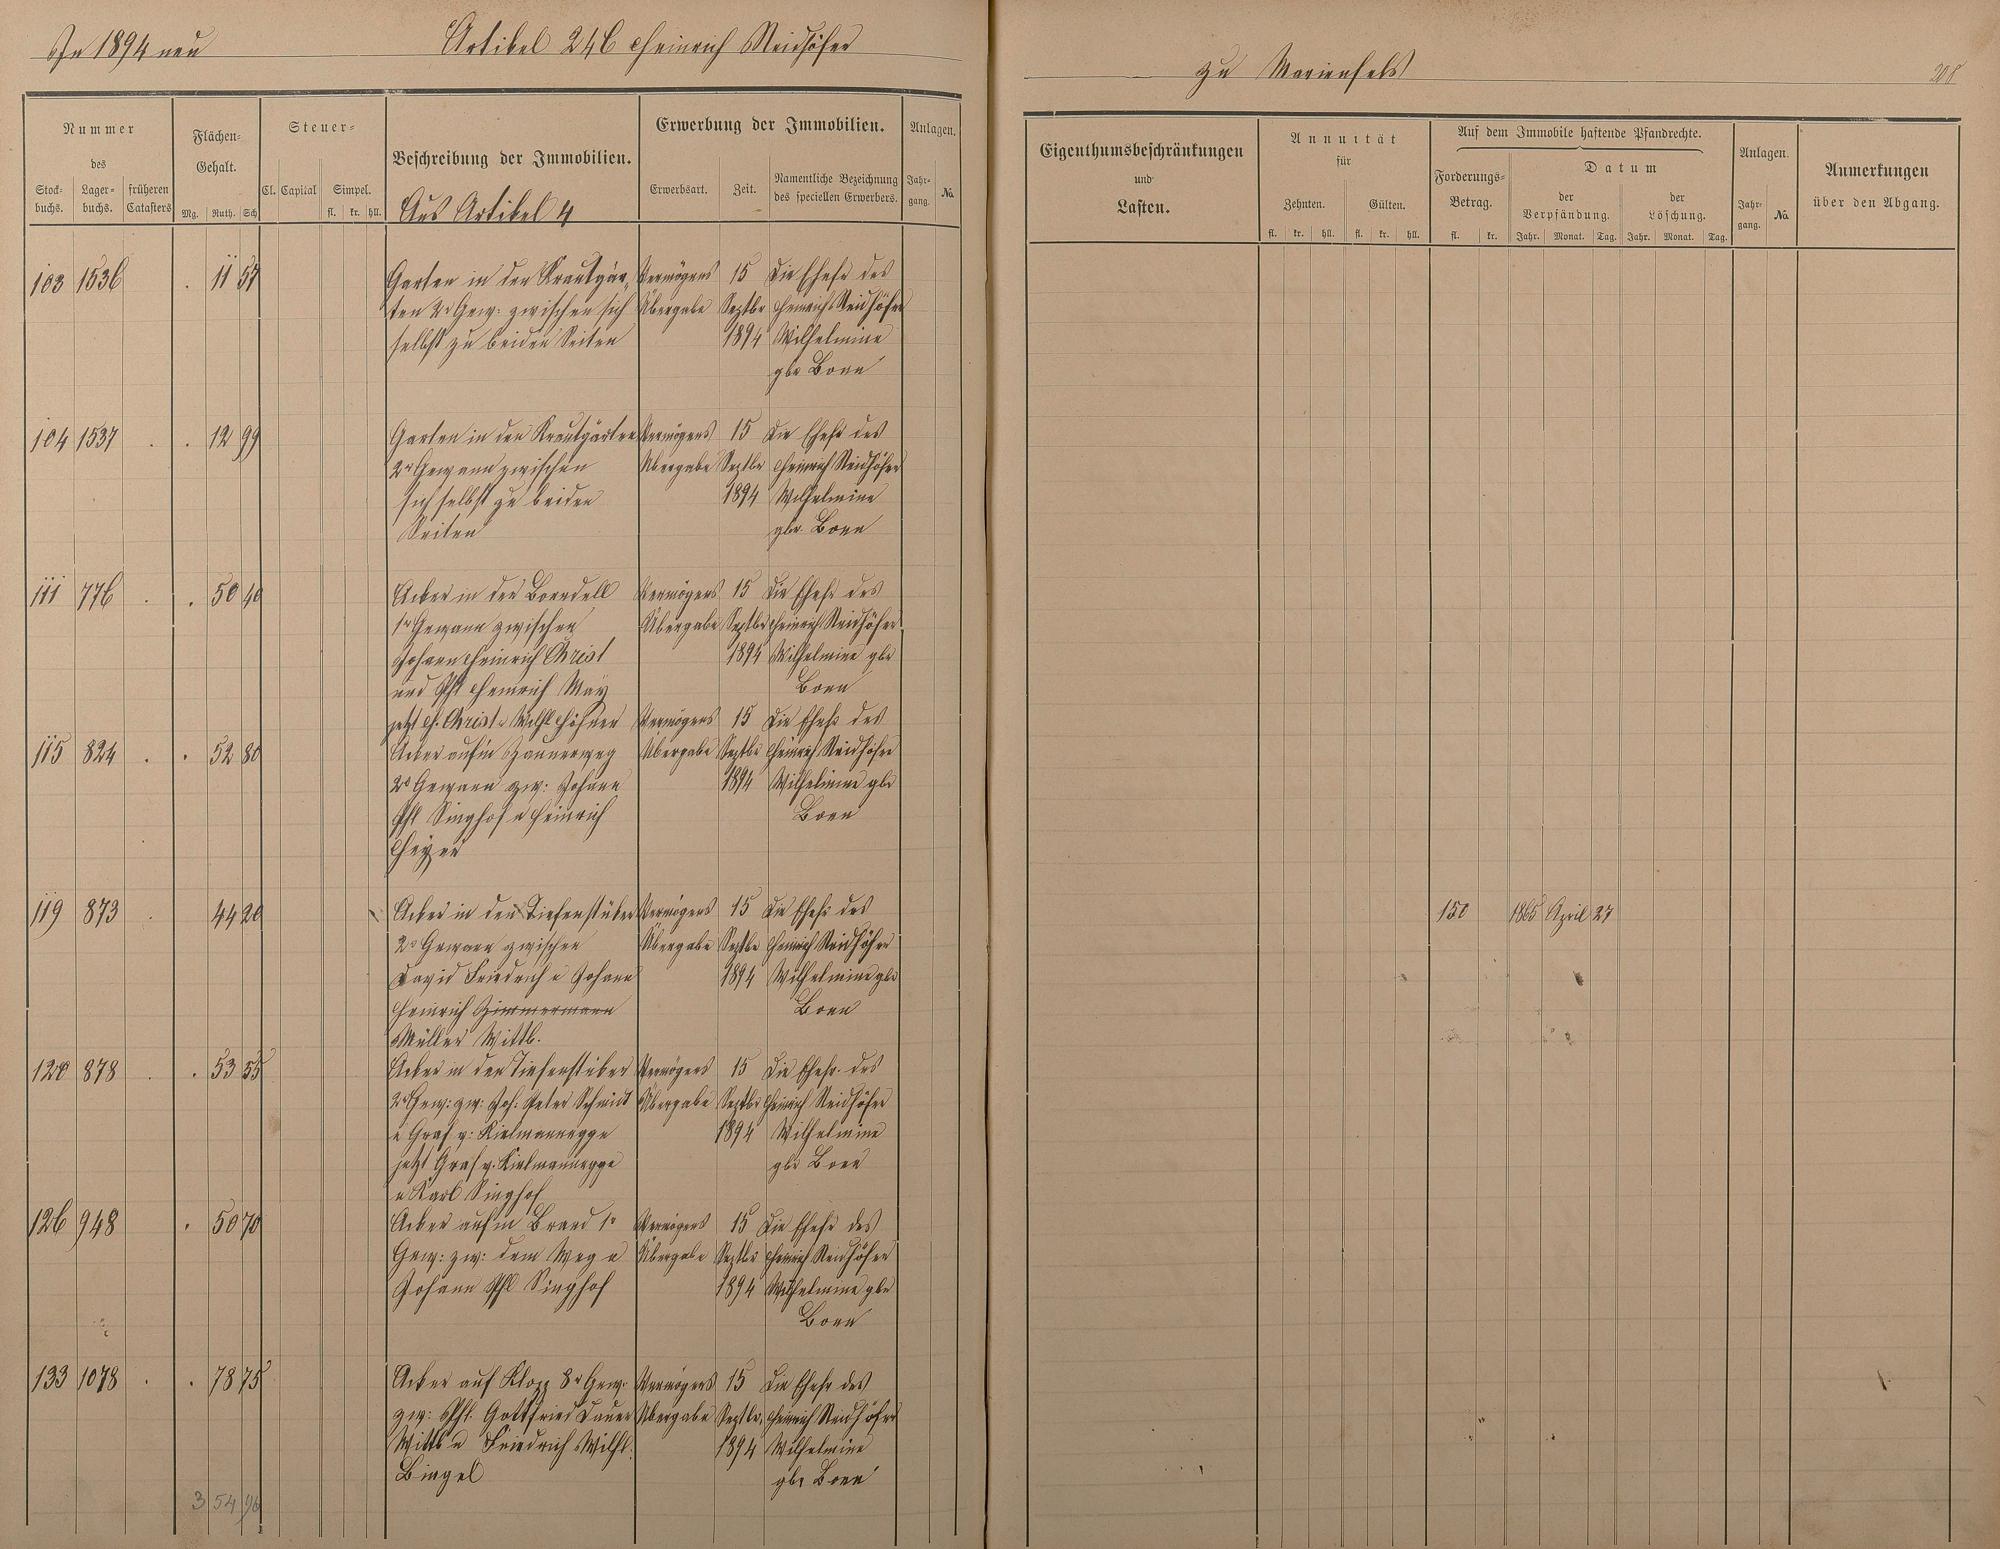 In 1894 neu
Artikel 246 Heinrich Neidhöfer
zu Marienfels
208
Nummer
des
Stock-
buchs.
Lager-
buchs.
früheren
Catasters
Flächen-
Gehalt.
Mg. Ruth. Sch.
Steuer-
Cl. Capital Simpel.
fl. kr. hll.
Beschreibung der Immobilien.
Aus Artikel 4
Erwerbung der Immobilien.
Erwerbsart. Zeit.
Namentliche Bezeichnung
des speciellen Erwerbers.
Anlagen.
Jahr-
gang.
No.
Eigenthumsbeschränkungen
und
Lasten.
Annuität
für
Zehnten. Gülten.
fl. kr. hll. fl. kr. hll.
Auf dem Immobile haftende Pfandrechte.
Forderungs-
Betrag.
fl. kr.
Datum
der
Verpfändung.
der
Löschung.
Jahr. Monat. Tag. Jahr. Monat. Tag.
Anlagen.
Jahr-
gang.
No.
Anmerkungen
über den Abgang.
103 1536 . 11 57 Garten in den Krautgär- Vermögens 15 Die Ehefr des
ten 2r Gew: zwischen sich Übergabe Septbr Heinrich Neidhöfer
selbst zu beiden Seiten 1894 Wilhelmine
gbr Bonn
104 1537 . . 12 99 Garten in den Krautgärten Vermögens 15 Die Ehefr des
2r Gewann zwischen Übergabe Septbr Heinrich Neidhöfer
sich selbst zu beiden 1894 Wilhelmine
Seiten gbr Bonn
111 776 . . 50 40 Acker in der Borndell Vermögens 15 Die Ehefr des
1r Gewann zwischen Übergabe Septbr Heinrich Neidhöfer
Johann Heinrich Christ 1894 Wilhelmine gbr
und Phl Heinrich May Bonn
jetzt H. Christ u Wilhl Höhner Vermögens 15 Die Ehefr des
115 824 . . 52 80 Acker auf'm Zaunerweg Übergabe Septbr Heinrich Neidhöfer
2r Gewann zw: Johann 1894 Wilhelmine gbr
Phl Singhof u Heinrich Bonn
119 873 . 44 20 Acker in den Tiefenstüber Vermögens 15 Die Ehefr des 150 1865 April 27
2r Gewann zwischen Übergabe Septbr Heinrich Neidhöfer
David Friedrich u Johann 1894 Wilhelmine gbr
Heinrich Zimmermann Bonn
Müller Wittb.
120 878 . . 53 55 Acker in den Tiefenstüber Vermögens 15 Die Ehefr. des
2r Gew: zw: Joh: Peter Schmidt Übergabe Septbr Heinrich Neidhöfer
u Graf v: Kielmannegge 1894 Wilhelmine
jetzt Graf v. Kielmannegge gbr Bonn
u Karl Singhof
126 948 . 50 70 Acker auf'm Brand 1r Vermögens 15 Die Ehefr des
Gew: zw: dem Weg u Übergabe Septbr Heinrich Neidhöfer
Johann Phl Singhof 1894 Wilhelmine gbr
Bonn
133 1078 . . 78 75 Acker auf Klopp 8r Gew: Vermögens 15 Die Ehefr des
zw: Phl. Gottfried Dauer Übergabe Septbr. Heinrich Neidhöfer
Wittb u Friedrich Wilhl. 1894 Wilhelmine
Bingel gbr Bonn
3 54 96